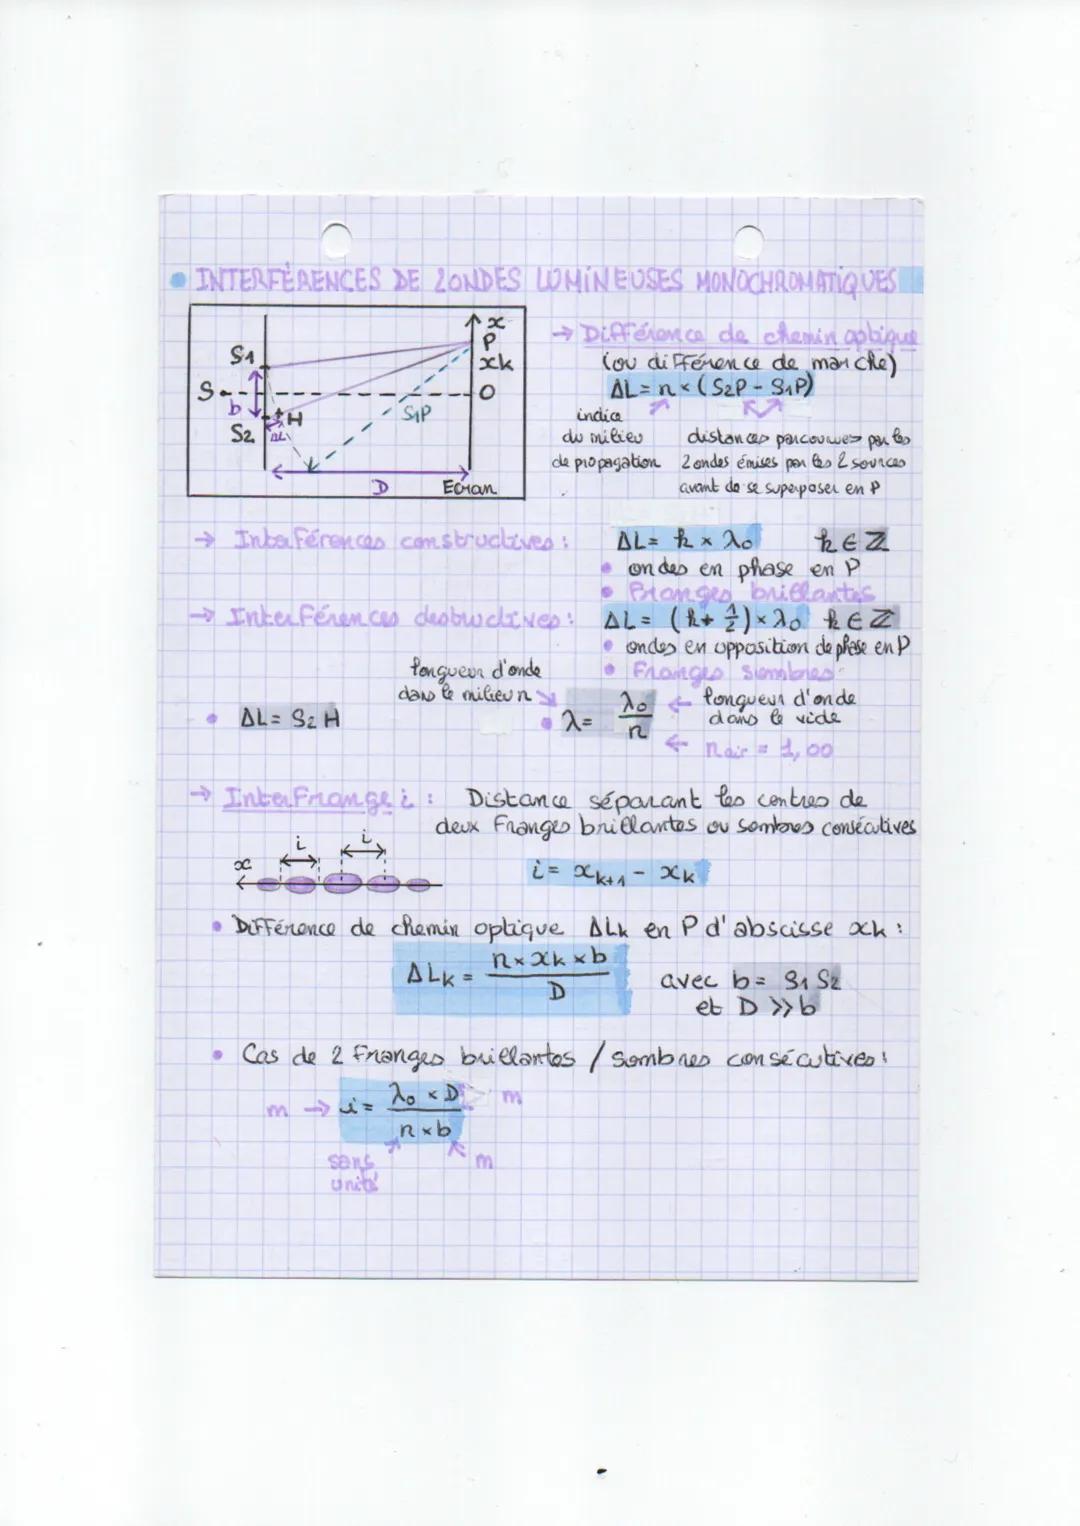 INTERFÉRENCES DE 2 ONDES LUMINEUSES MONOCHROMATIQUES
x
P
xk
S1
S
O
b
H
S2
ΔL
S1P
D
Ecran
→ Différence de chemin optique
(ou différence de marche)
ΔL = n × (S2P - S1P)
indice
du milieu
de propagation
distances parcourues par les
2 ondes émises par les 2 sources
avant de se superposer en P
→ Interférences constructives : ΔL = k × λ0 k ∈ ℤ
• ondes en phase en P
• Franges brillantes
→ Interférences destructives : ΔL = (k + 1/2) × λ0 k ∈ ℤ
• ondes en opposition de phase en P
• Franges sombres
longueur d'onde
dans le milieu n
• ΔL = S2 H
• λ = λ0 / n
← longueur d'onde
dans le vide
← nair = 1,00
→ Interfrange i : Distance séparant les centres de
deux franges brillantes ou sombres consécutives
i i
x
i = xk+1 - xk
• Différence de chemin optique ΔLk en P d'abscisse xk :
ΔLk = n × xk × b / D
avec b = S1 S2
et D >> b
• Cas de 2 franges brillantes / sombres consécutives :
m → i = λ0 × D / n × b
m
sans
unité
m